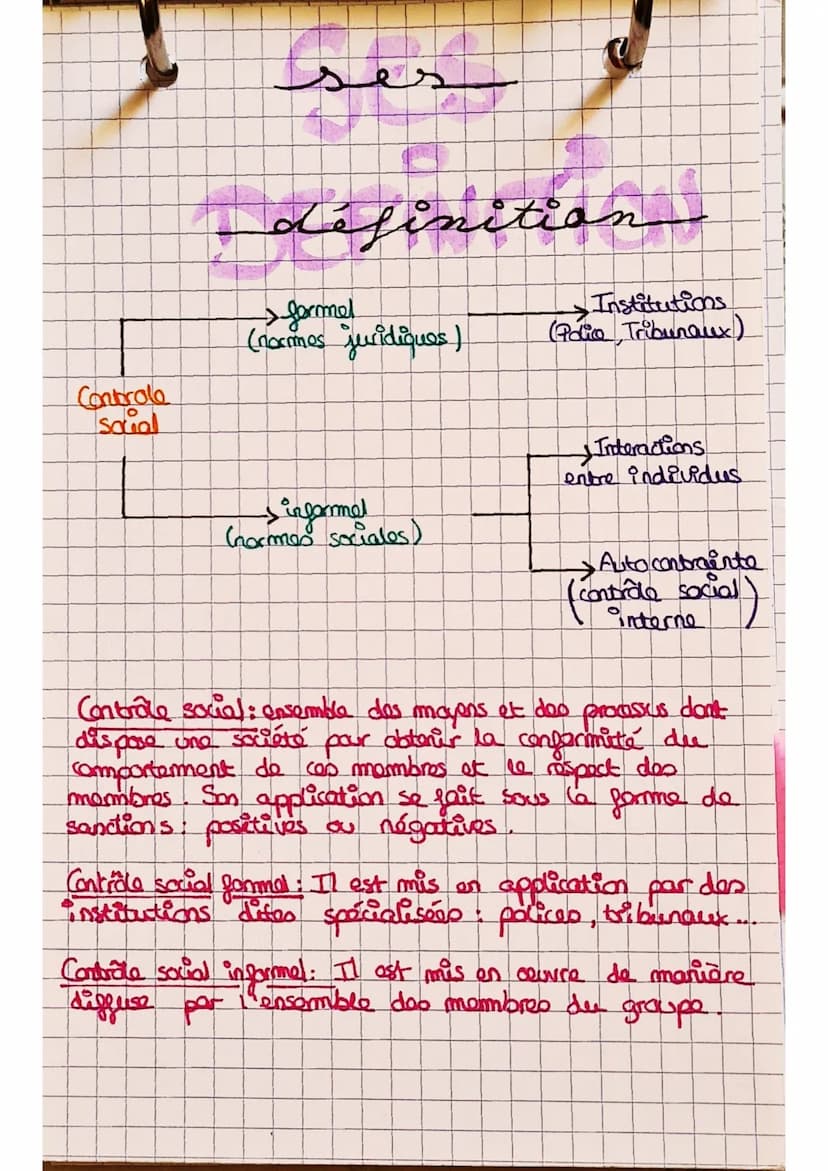 SES
ses
DEFINITION
définition
formel
(normes juridiques)
Institutions
(Police, Tribunaux)
Controle
social
Interactions
entre individus
informel
(normes sociales)
Autocontrainte
(contrôle social
interne)
Contrôle social : ensemble des moyens et des processus dont
dispose une société pour obtenir la conformité du
comportement de ces membres et le respect des
membres. Son application se fait sous la forme de
sanctions : positives ou négatives.
Contrôle social formel : Il est mis en application par des
institutions dites spécialisées : polices, tribunaux...
Contrôle social informel : Il est mis en oeuvre de manière
diffuse par l'ensemble des membres du groupe.